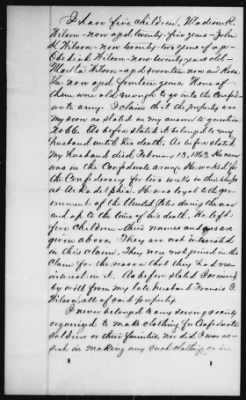 I have five children, Madison R.
Wilson - now aged twenty-five years - John
R Wilson - now twenty-two years of age
Obediah Wilson - now twenty years old -
Martha Wilson - aged seventeen now and
now aged fourteen years. None of
them were old enough to go into the Confed-
erate army. I claim that the property was
my own as stated in my answer to question
No 66. As before stated it belonged to my
husband until his death. As before stated
my husband died, February 13, 1863. He never
was in the Confederate army. He worked for
the Confederacy for six weeks in their shops
at Arkadelphia. He was loyal to the gov-
ernment of the United States during the war
and up to the time of his death. He left
five children - their names and ages as
given above. They are not interested
in this claim. They were not joined in the
claim for the reason that they had no
interest in it. As before stated I owned
by will from my late husband Francis G
Wilson, all of said property.
I never belonged to any sewing society
organized to make clothing for Confederate
soldiers or their families, nor did I ever as-
sist in making any such clothing, or in